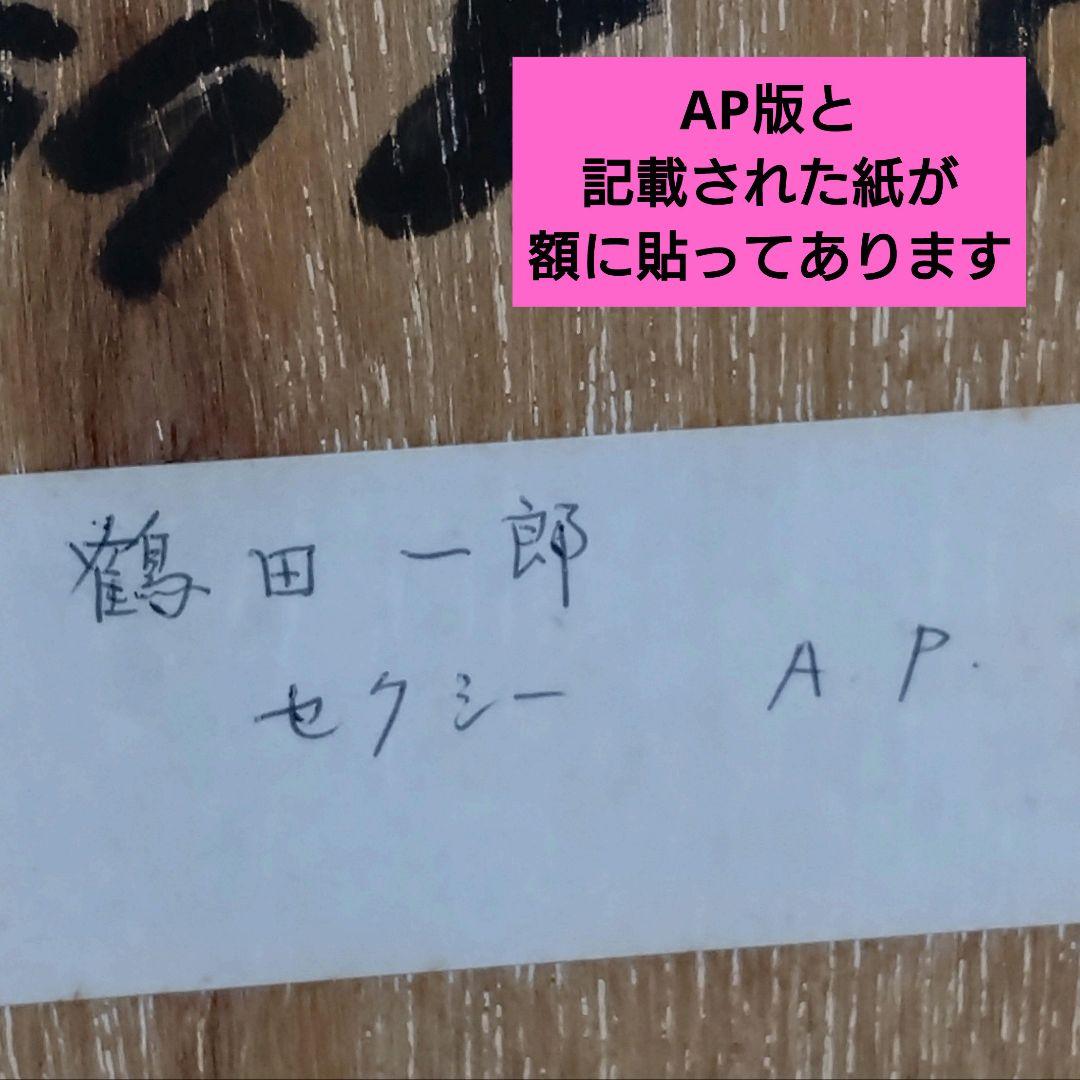 AP版と
記載された紙が
額に貼ってあります
鶴田一郎
セクシー A.P.